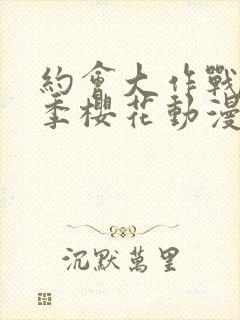 約會大作戰
季櫻花動漫
沉默萬里